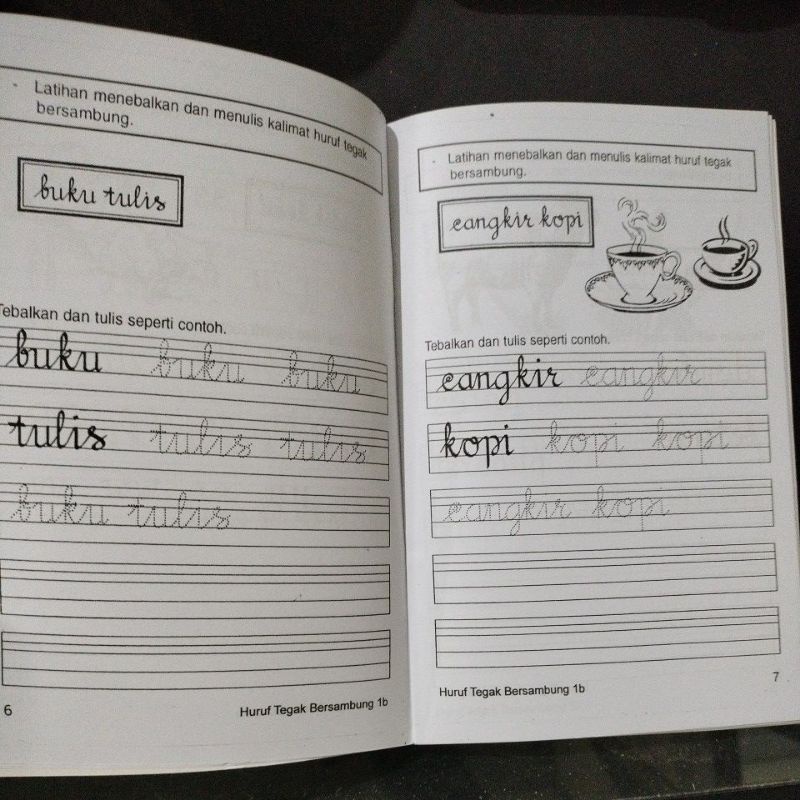 - Latihan menebalkan dan menulis kalimat huruf tegak
bersambung.
buku tulis
Tebalkan dan tulis seperti contoh.
buku buku buku
tulis tulis tulis
buku tulis
6
Huruf Tegak Bersambung 1b
- Latihan menebalkan dan menulis kalimat huruf tegak
bersambung.
cangkir kopi
Tebalkan dan tulis seperti contoh.
cangkir cangkir
kopi kopi kopi
cangkir kopi
Huruf Tegak Bersambung 1b
7